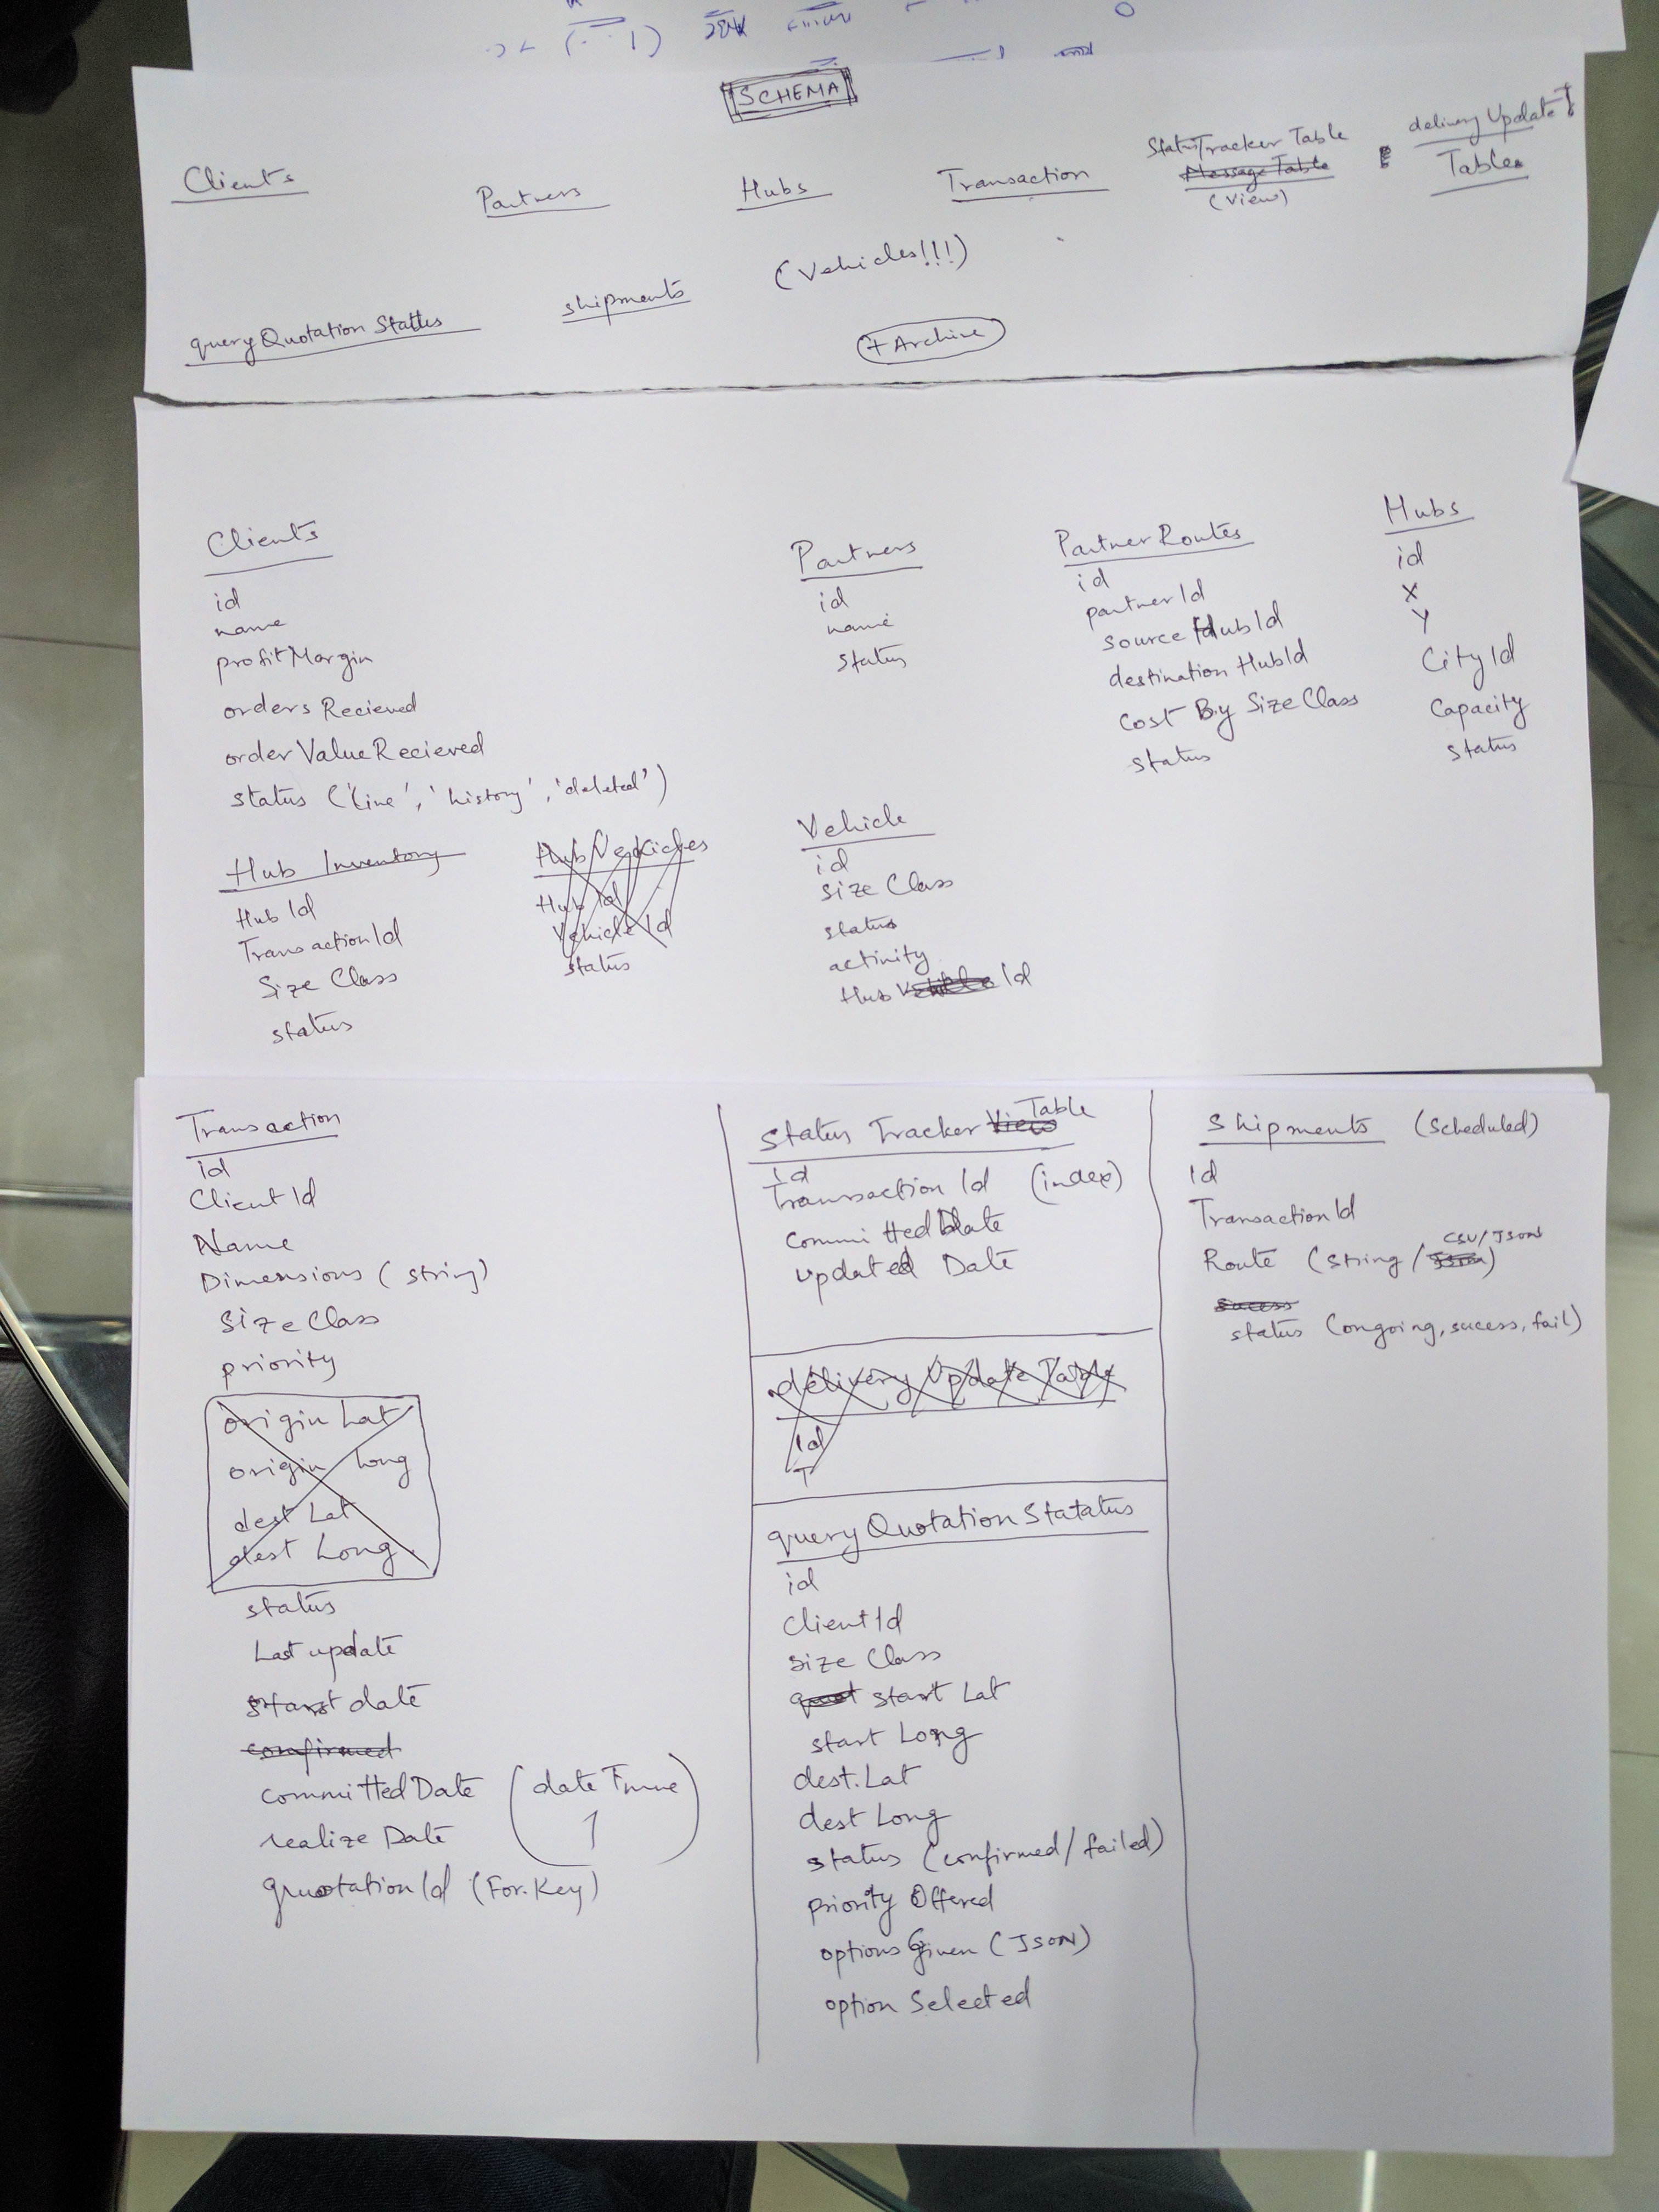 SCHEMA
Clients
Partners
Hubs
Transaction
StatusTracker Table
Message Table
(View)
delivery Update
Table
queryQuotation Status
shipments
(Vehicles!!!)
+ Archive
Clients
id
name
profitMargin
orders Recieved
order Value Recieved
status ('live', 'history', 'deleted')
Partners
id
name
status
PartnerRoutes
id
partnerId
source HubId
destination HubId
Cost By Size Class
status
Hubs
id
X
Y
CityId
Capacity
status
Hub Inventory
Hub Id
TransactionId
Size Class
status
Hub Vehicles
Hub Id
Vehicle Id
status
Vehicle
id
Size Class
status
activity
Hub Vehicle Id
Transaction
id
ClientId
Name
Dimensions (string)
SizeClass
priority
origin Lat
origin Long
dest Lat
dest Long
status
Last update
start date
confirmed
committedDate (dateTime
realize Date 1)
quotationId (For.Key)
Status Tracker View Table
id
Transaction Id (index)
committedDate
updated Date
delivery Update Table
Id
T
queryQuotationStatatus
id
ClientId
size Class
start Lat
start Long
dest.Lat
dest Long
status (confirmed/failed)
priority Offered
options Given (JSON)
option Selected
Shipments (Scheduled)
Id
TransactionId
Route (string/CSV/JSON)
Sucess
status (ongoing, sucess, fail)